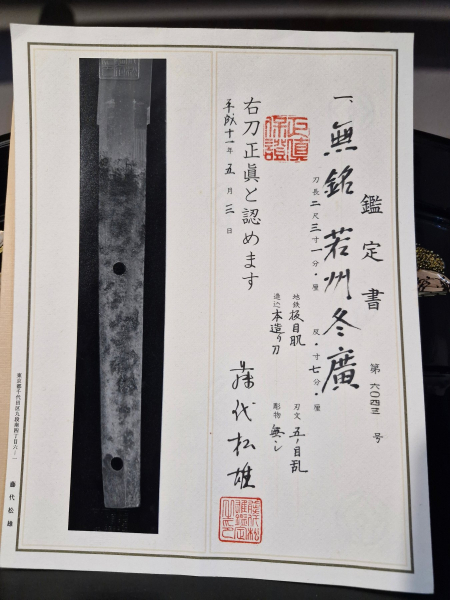 鑑定書
第六〇四三号
一、無銘 若州冬廣
刀長二尺三寸一分・厘 反・寸七分・厘
地鉄 板目肌 刃文 五ノ目乱
造込 本造り刀 彫物 無し
正真保證
右刀正眞と認めます
平成十一年五月三日
藤代松雄
東京都千代田区九段南四丁目六ノ一 藤代松雄